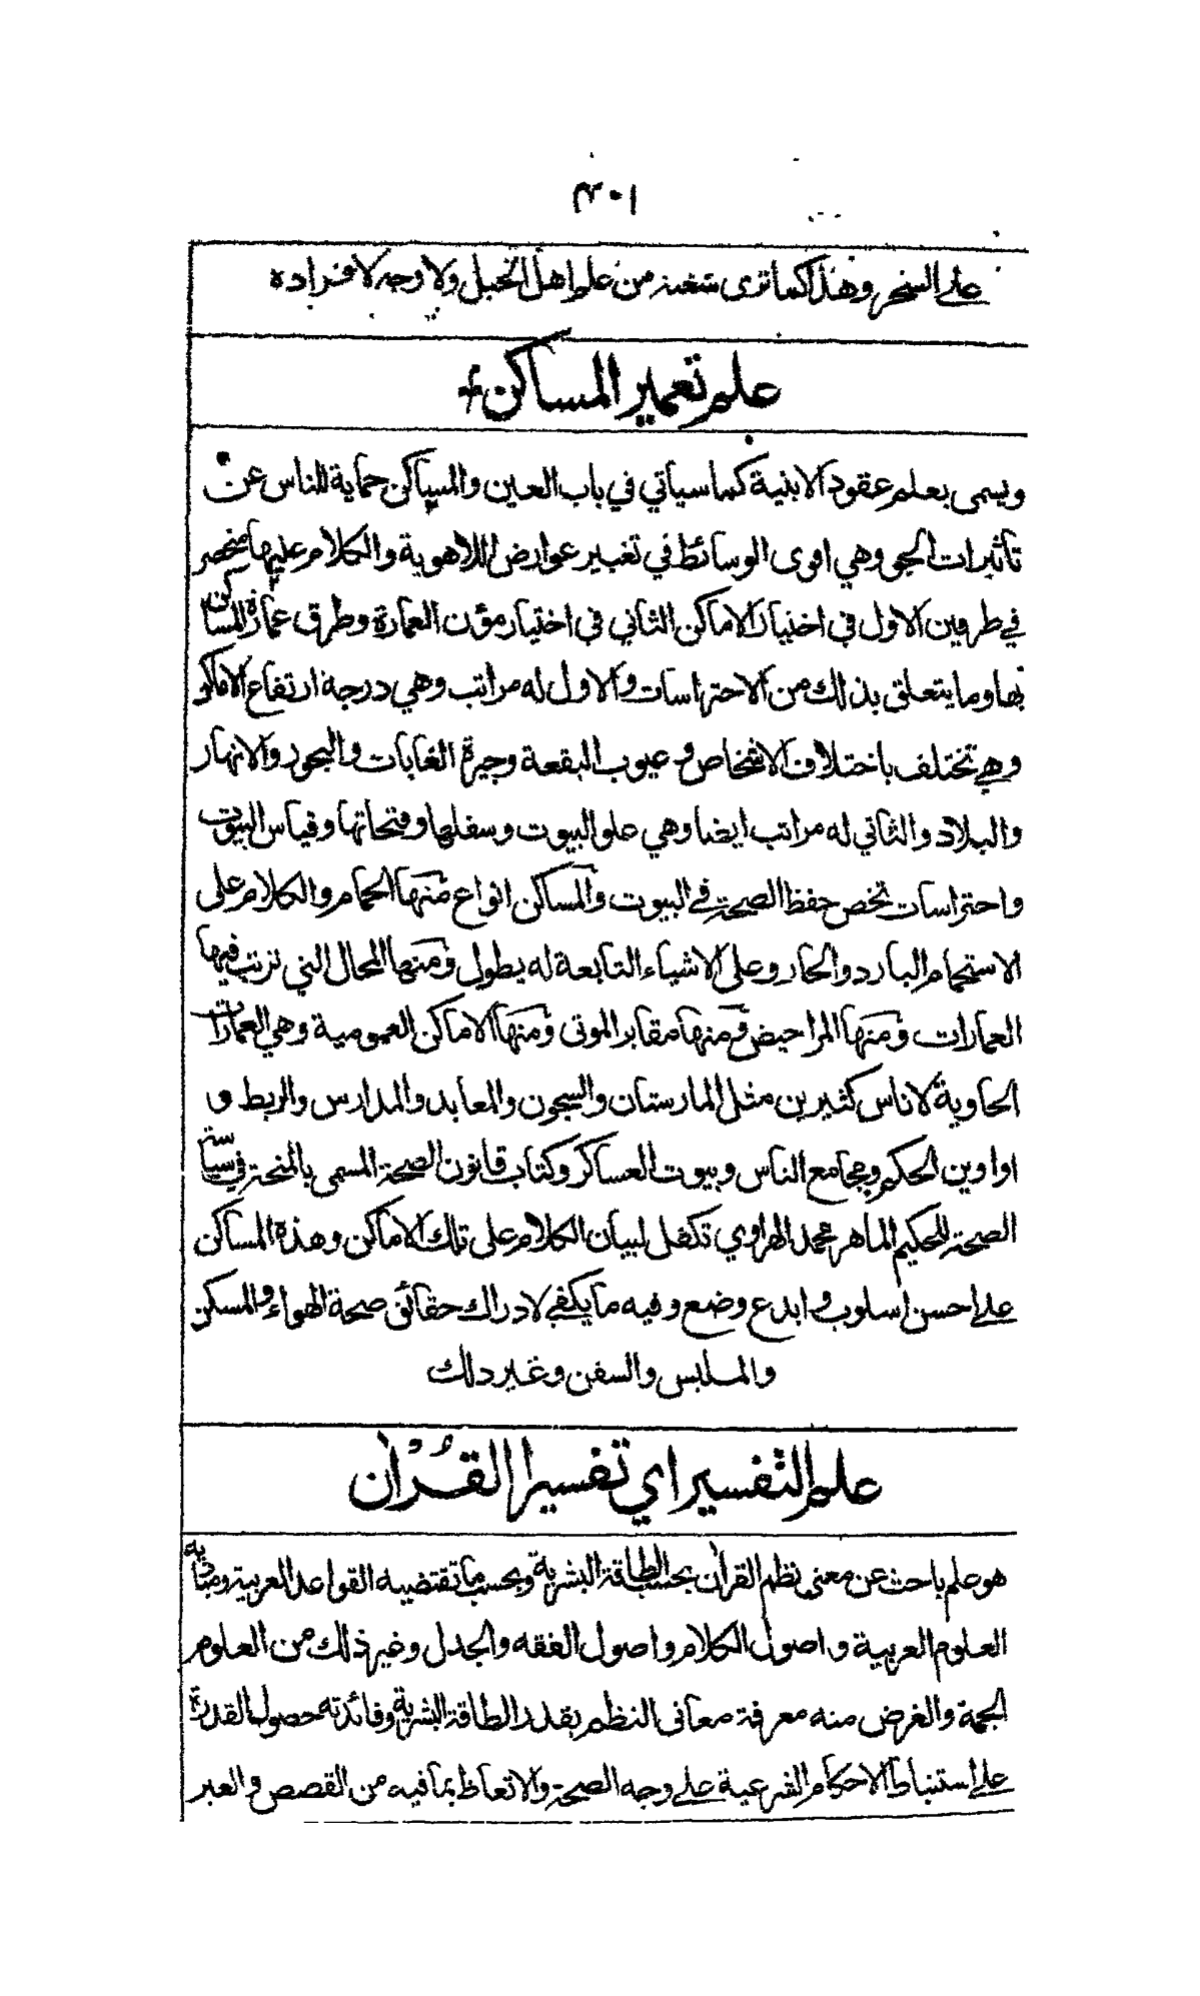 ٣٠١
على السحر وهذا كما ترى شعبة من علم اهل الحيل ولا وجه لا فراده
علم تعمير المساكن
ويسمى بعلم عقود الابنية كما سياتي في باب العين والمساكن حماية للناس عن
تأثيرات الجو وهي اقوى الوسائط في تغيير عوارض للاهوية والكلام عليها منحصر
في طرفين الاول في اختيار الاماكن الثاني في اختيار مؤن العمارة وطرق عمارة المساكن
بها وما يتعلق بذلك من الاحتراسات والاول له مراتب وهي درجة ارتفاع الاماكن
وهي تختلف باختلاف الاشخاص وعيوب البقعة وجيرة الغابات والبحور والانهار
والبلاد والثاني له مراتب ايضا وهي علو البيوت وسفلها وفتحاتها وقياس البيوت
واحتراسات تخص حفظ الصحة في البيوت والمساكن انواع منها الحمام والكلام على
الاستحمام البارد والحار وعلى الاشياء التابعة له يطول ومنها المحال التي ترتب فيها
العمارات ومنها المراحيض ومنها مقابر الموتى ومنها الاماكن العمومية وهي العمارات
الحاوية لاناس كثيرين مثل المارستان والسجون والمعابد والمدارس والربط و
اواوين الحكم ومجامع الناس وبيوت العساكر وكتاب قانون الصحة المسمى بالمنحة في سياسة
الصحة للحكيم الماهر محمد الهراوي تكفل لبيان الكلام على تلك الاماكن وهذه المساكن
على احسن اسلوب وابدع وضع وفيه ما يكفي لادراك حقائق صحة الهواء والمسكن
والملبس والسفن وغير ذلك
علم التفسير اي تفسير القُرْاٰن
هو علم باحث عن معنى نظم القراٰن بحسب الطاقة البشرية وبحسب ما تقتضيه القواعد العربية ومباديه
العلوم العربية واصول الكلام واصول الفقه والجدل وغير ذلك من العلوم
الجمة والغرض منه معرفة معانى النظم بقدر الطاقة البشرية وفائدته حصول القدرة
على استنباط الاحكام الشرعية على وجه الصحة والاتعاظ بما فيه من القصص والعبر